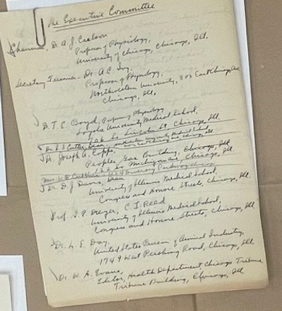 The Executive Committee
Chairman, Dr. A. J. Carlson
Professor of Physiology,
University of Chicago, Chicago, Ill.
Secretary Treasurer - Dr. A. C. Ivy,
Professor of Physiology,
Northwestern University, 303 East Chicago Ave
Chicago, Ill.
Dr. T. E. Boyd, Professor of Physiology
Loyola University Medical School,
706 So. Lincoln St. Chicago, Ill.
Dr. Joseph A. Capps,
Peoples Gas Building, Chicago, Ill.
Dr. D. J. Davis, Dean
University of Illinois Medical School,
Congress and Honore Streets, Chicago, Ill.
Prof. G. P. Dreyer, C. I. Reed
University of Illinois Medical School,
Congress and Honore Streets, Chicago, Ill.
Dr. L. E. Day,
United States Bureau of Animal Industry,
1749 West Pershing Road, Chicago, Ill.
Dr. W. A. Evans,
Editor, Health Department Chicago Tribune
Tribune Building, Chicago, Ill